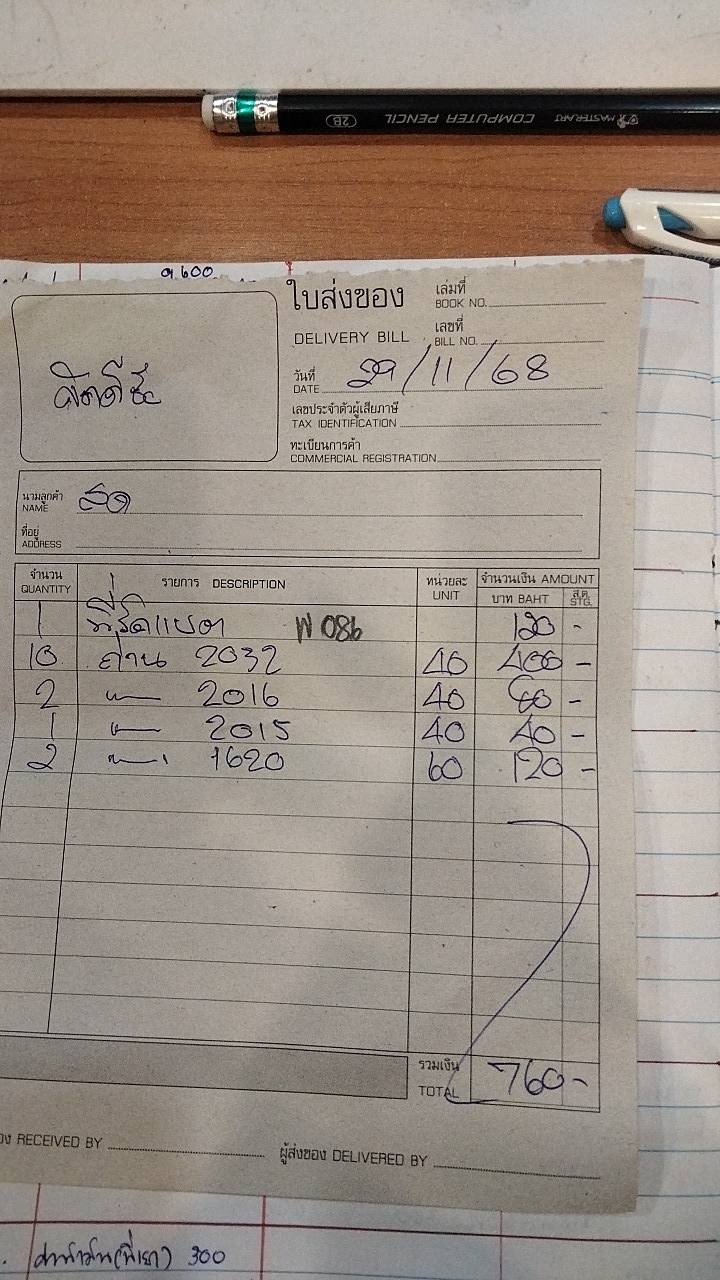 MASTERART COMPUTER PENCIL 2B
9,600
ใบส่งของ
DELIVERY BILL
เล่มที่
BOOK NO.
เลขที่
BILL NO.
วันที่
DATE 29/11/68
เลขประจำตัวผู้เสียภาษี
TAX IDENTIFICATION
ทะเบียนการค้า
COMMERCIAL REGISTRATION
นามลูกค้า
NAME สด
ที่อยู่
ADDRESS
จำนวน รายการ DESCRIPTION หน่วยละ จำนวนเงิน AMOUNT
QUANTITY UNIT บาท BAHT ส.ต. STG.
1 W086 120 -
10 ถ่าน 2032 40 400 -
2 2016 40 80 -
1 2015 40 40 -
2 1620 60 120 -
รวมเงิน
TOTAL 760 -
RECEIVED BY ผู้ส่งของ DELIVERED BY
300